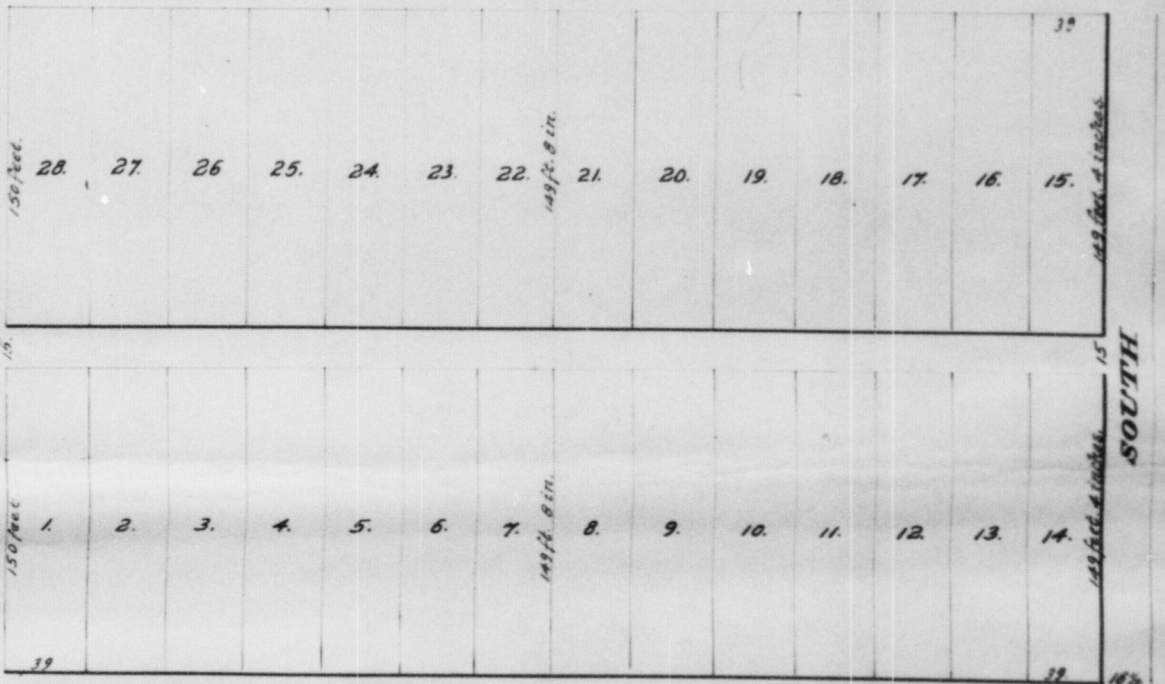 39
150 feet.
28. 27. 26 25. 24. 23. 22. 149 ft. 8 in. 21. 20. 19. 18. 17. 16. 15.
149 feet. 4 inches.
15.
15
SOUTH
150 feet
1. 2. 3. 4. 5. 6. 7. 149 ft. 8 in. 8. 9. 10. 11. 12. 13. 14.
149 feet. 4 inches.
39
39